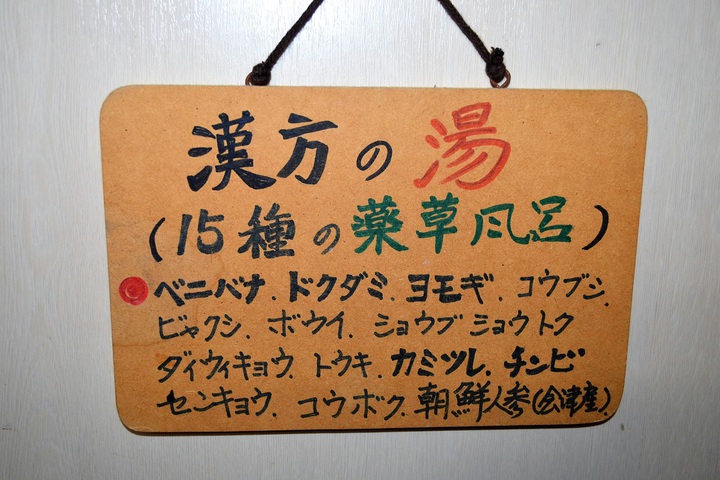 漢方の湯
(15種の薬草風呂)
ベニバナ、ドクダミ、ヨモギ、コウブシ、
ビャクシ、ボウイ、ショウブ ショウトク
ダイウイキョウ、トウキ、カミツレ、チンピ
センキョウ、コウボク、朝鮮人参(会津産)、